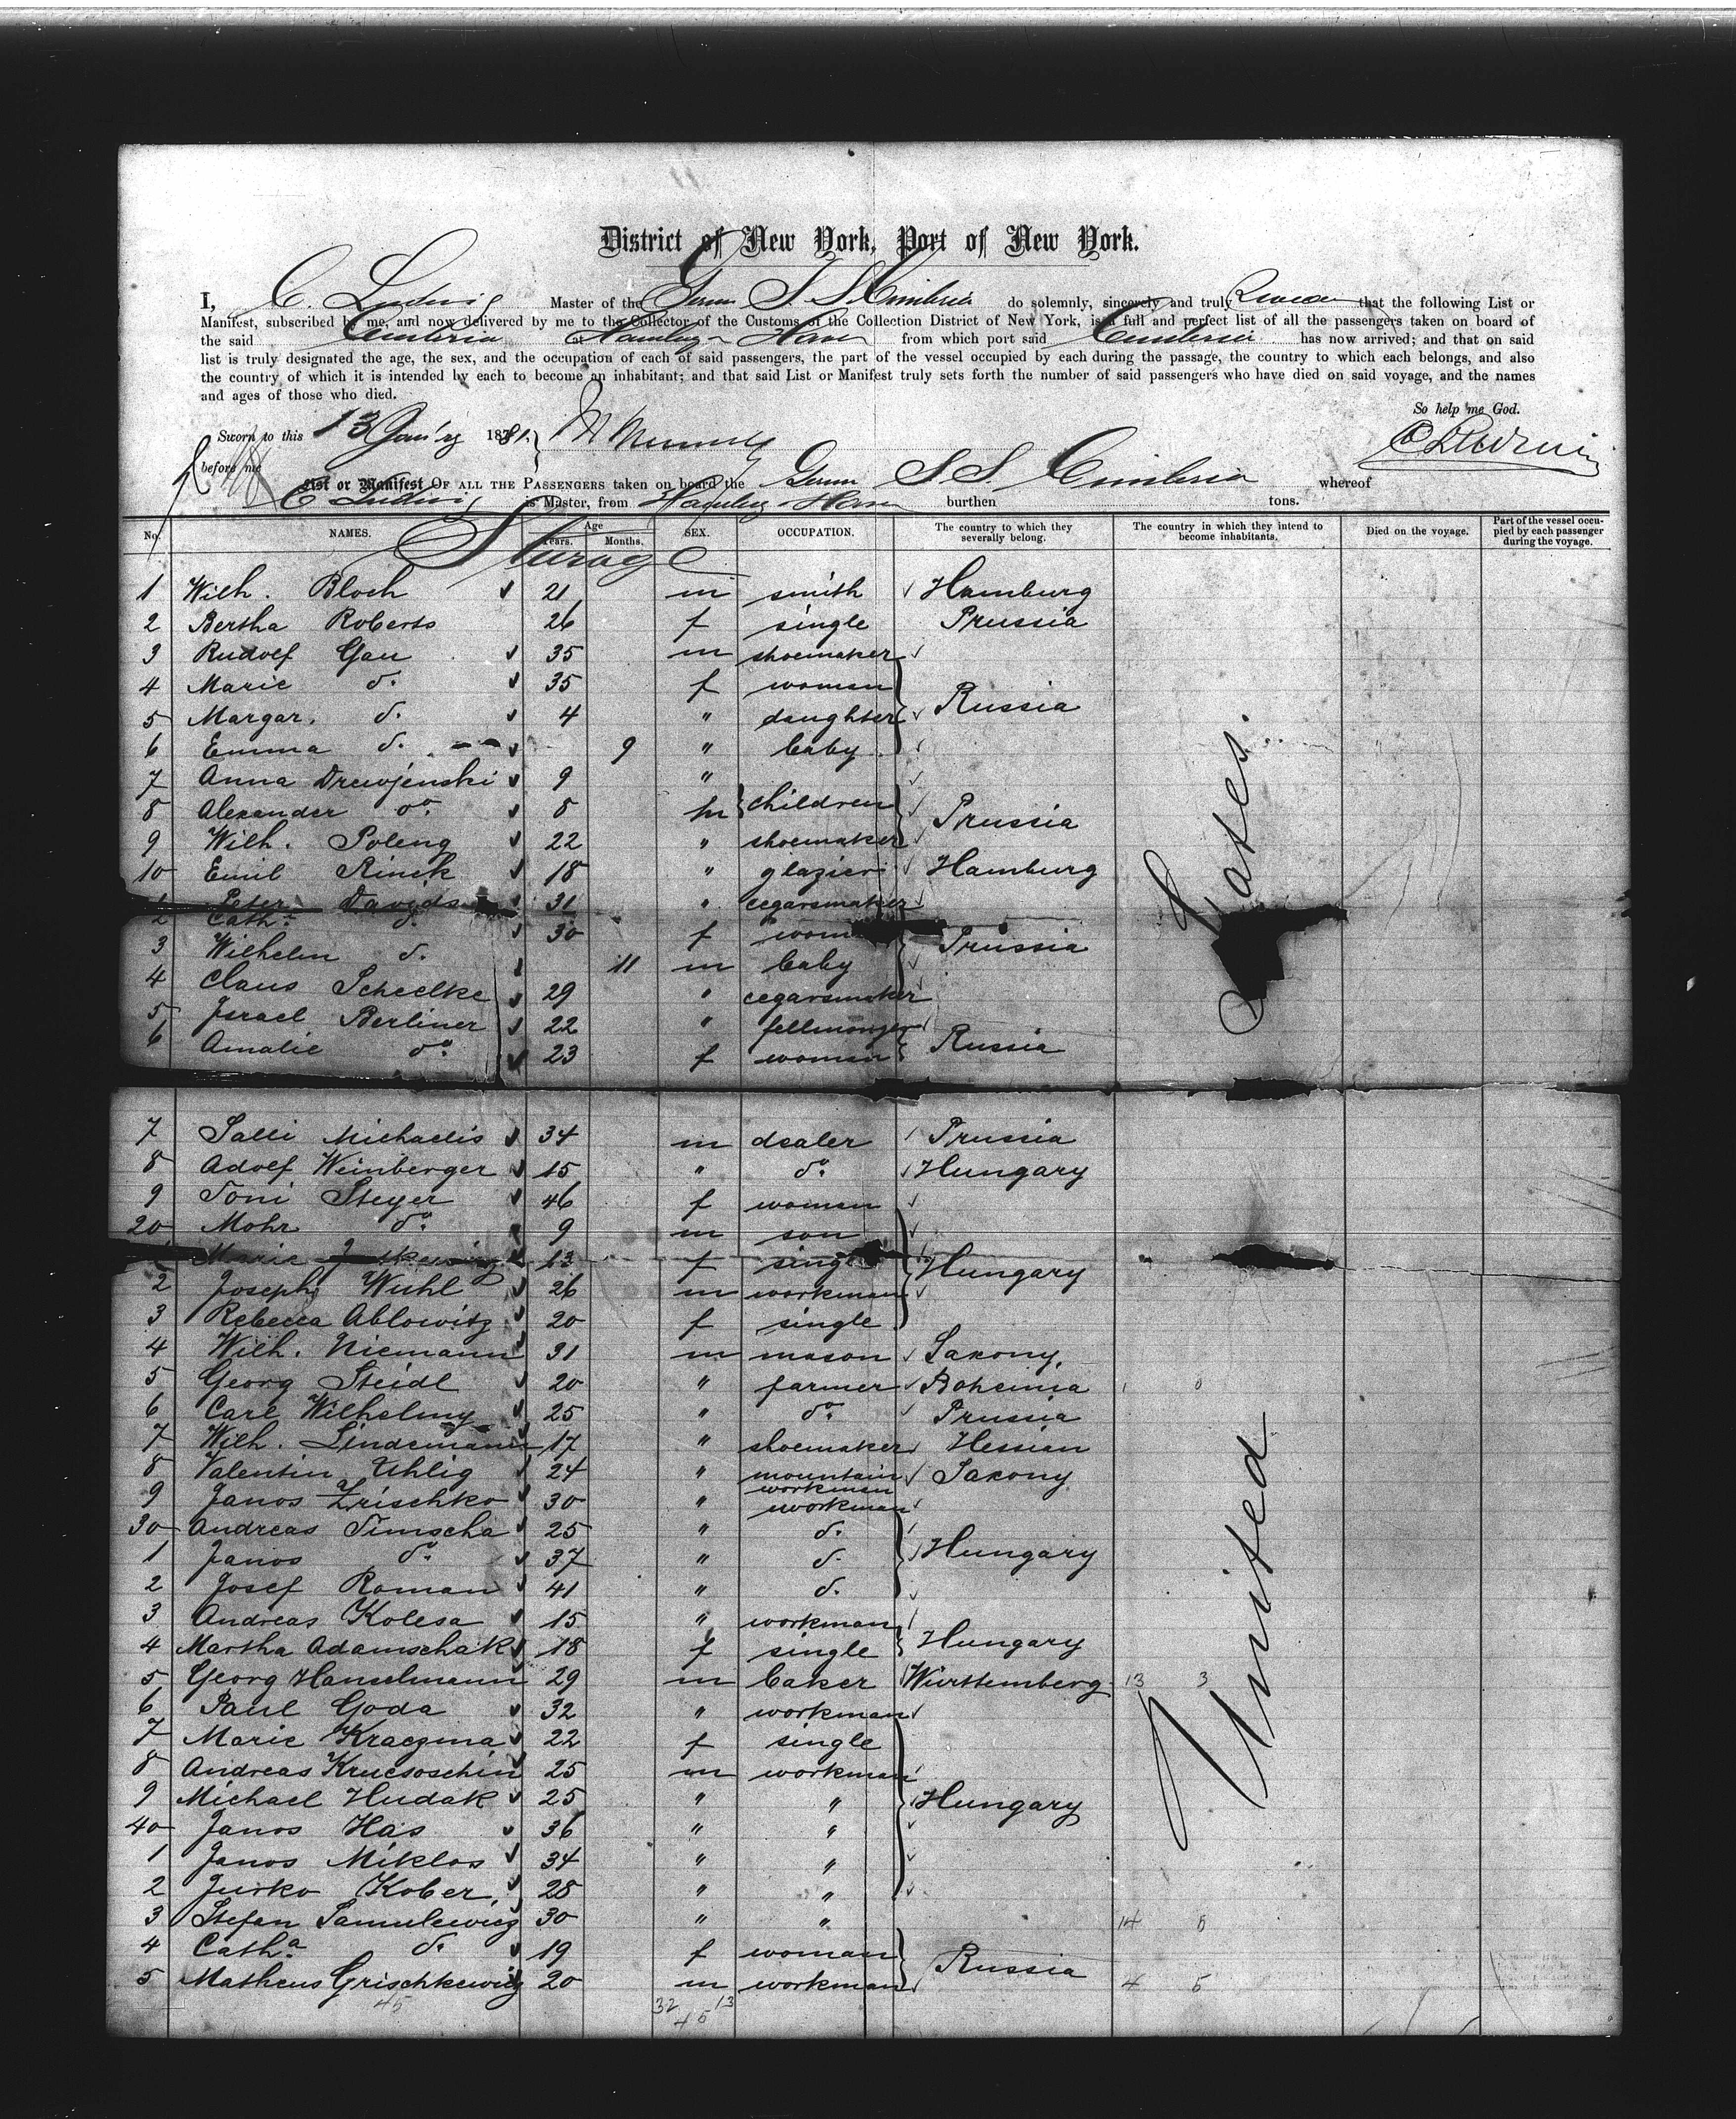 District of New York, Port of New York.
I, C. Ludwig Master of the Germ S. S. Cimbria do solemnly, sincerely and truly Swear that the following List or
Manifest, subscribed by me, and now delivered by me to the Collector of the Customs of the Collection District of New York, is a full and perfect list of all the passengers taken on board of
the said Cimbria Hamburg - Havre from which port said Cimbria has now arrived; and that on said
list is truly designated the age, the sex, and the occupation of each of said passengers, the part of the vessel occupied by each during the passage, the country to which each belongs, and also
the country of which it is intended by each to become an inhabitant; and that said List or Manifest truly sets forth the number of said passengers who have died on said voyage, and the names
and ages of those who died.
So help me God.
Sworn to this 13 Jan'ry 1881
before me
C Ludwig
List or Manifest OF ALL THE PASSENGERS taken on board the Germ S S Cimbria whereof
C Ludwig is Master, from Hamburg - Havre burthen tons.
No. NAMES. Age Years. Months. SEX. OCCUPATION. The country to which they severally belong. The country in which they intend to become inhabitants. Died on the voyage. Part of the vessel occupied by each passenger during the voyage.
Sterage
1 Wilh. Bloch 21 m smith Hamburg
2 Bertha Roberts 26 f single Prussia
3 Rudolf Gau 35 m shoemaker
4 Marie do. 35 f woman
5 Margar. do. 4 " daughter Russia
6 Emma do. 9 " baby
7 Anna Drewjenski 9 "
8 Alexander do. 8 m children Prussia
9 Wilh. Poleng 22 " shoemaker
10 Emil Rinck 18 " glazier Hamburg
1 Peter Davids 31 " cegarsmaker
2 Cath. do. 30 f woman Prussia
3 Wilhelm do. 11 m baby
4 Claus Scheelke 29 " cegarsmaker
5 Israel Berliner 22 " fellmonger
6 Amalie do. 23 f woman Russia
7 Salli Michaelis 34 m dealer Prussia
8 Adolf Weinberger 15 " do. Hungary
9 Toni Steyer 46 f woman
20 Mohr do. 9 m son
Marie 13 f single Hungary
2 Joseph Wuhl 26 m workman
3 Rebecca Ablowitz 20 f single
4 Wilh. Niemann 31 m mason Saxony
5 Georg Steidl 20 " farmer Bohemia
6 Carl Wilhelmy 25 " do. Prussia
7 Wilh. Lindemann 17 " shoemaker Hessian
8 Valentin Uhlig 24 " mountain workman Saxony
9 Janos Zrischko 30 " workman
30 Andreas Timscha 25 " do.
1 Janos do. 37 " do. Hungary
2 Josef Roman 41 " do.
3 Andreas Kolesa 15 " workman
4 Martha Adamschak 18 f single Hungary
5 Georg Hanselmann 29 m baker Württemberg 13 3
6 Paul Goda 32 " workman
7 Marie Kraczma 22 f single
8 Andreas Krucsoschin 25 m workman
9 Michael Hudak 25 " " Hungary
40 Janos Has 36 " "
1 Janos Miklos 34 " "
2 Jurko Kober 28 " "
3 Stefan Samulewicz 30 " " 14
4 Catha. do. 19 f woman Russia
5 Matheus Grischkewicz 20 m workman 4 5
45 32 13
45
United States.